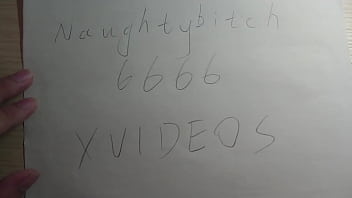 Naughtybitch
6666
XVIDEOS